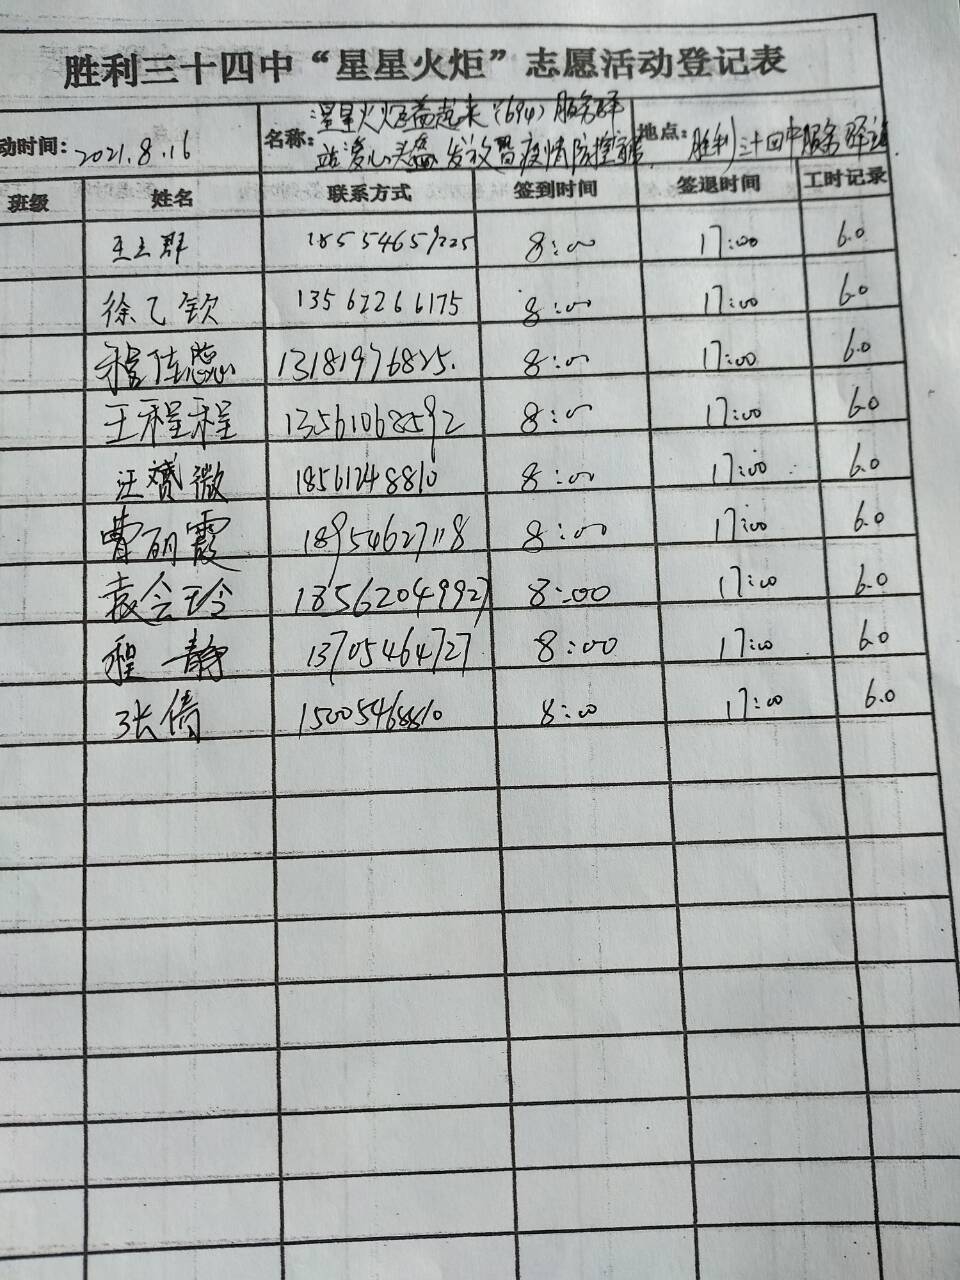 胜利三十四中“星星火炬”志愿活动登记表
动时间: 2021.8.16 名称: 星星火炬益起来(694)服务驿 站爱心头盔发放暨疫情防控 地点: 胜利三十四中服务驿站
班级 姓名 联系方式 签到时间 签退时间 工时记录
王立群 18554659225 8:00 17:00 6.0
徐乙钦 13562266175 8:00 17:00 6.0
程佳蕊 13181976825. 8:00 17:00 6.0
王程程 13561068592 8:00 17:00 6.0
汪赟微 18561248810 8:00 17:00 6.0
曹丽霞 18954627118 8:00 17:00 6.0
袁会玲 18562049927 8:00 17:00 6.0
程静 13705464727 8:00 17:00 6.0
张倩 15005468810 8:00 17:00 6.0